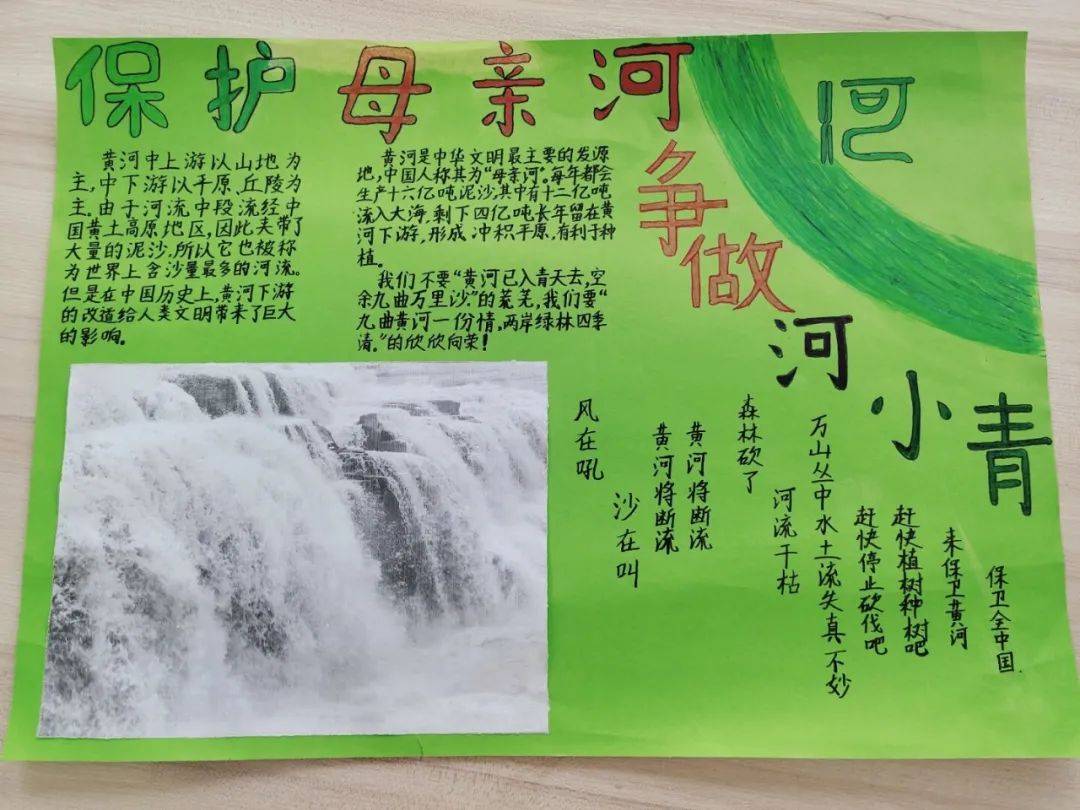 保护母亲河
河
争做
河
小
青
黄河中上游以山地为
主,中下游以平原、丘陵为
主.由于河流中段流经中
国黄土高原地区,因此夹带了
大量的泥沙.所以它也被称
为世界上含沙量最多的河流。
但是在中国历史上,黄河下游
的改道给人类文明带来了巨大
的影响。
黄河是中华文明最主要的发源
地,中国人称其为“母亲河”。每年都会
生产十六亿吨泥沙,其中有十二亿吨
流入大海.剩下四亿吨长年留在黄
河下游,形成冲积平原,有利于种
植。
我们不要“黄河已入青天去,空
余九曲万里沙”的荒芜,我们要“
九曲黄河一份情。两岸绿林四季
清。”的欣欣向荣!
风在吼
沙在叫
黄河将断流
黄河将断流
森林砍了
河流干枯
万山丛中水土流失真不妙
赶快停止砍伐吧
赶快植树种树吧
来保卫黄河
保卫全中国.